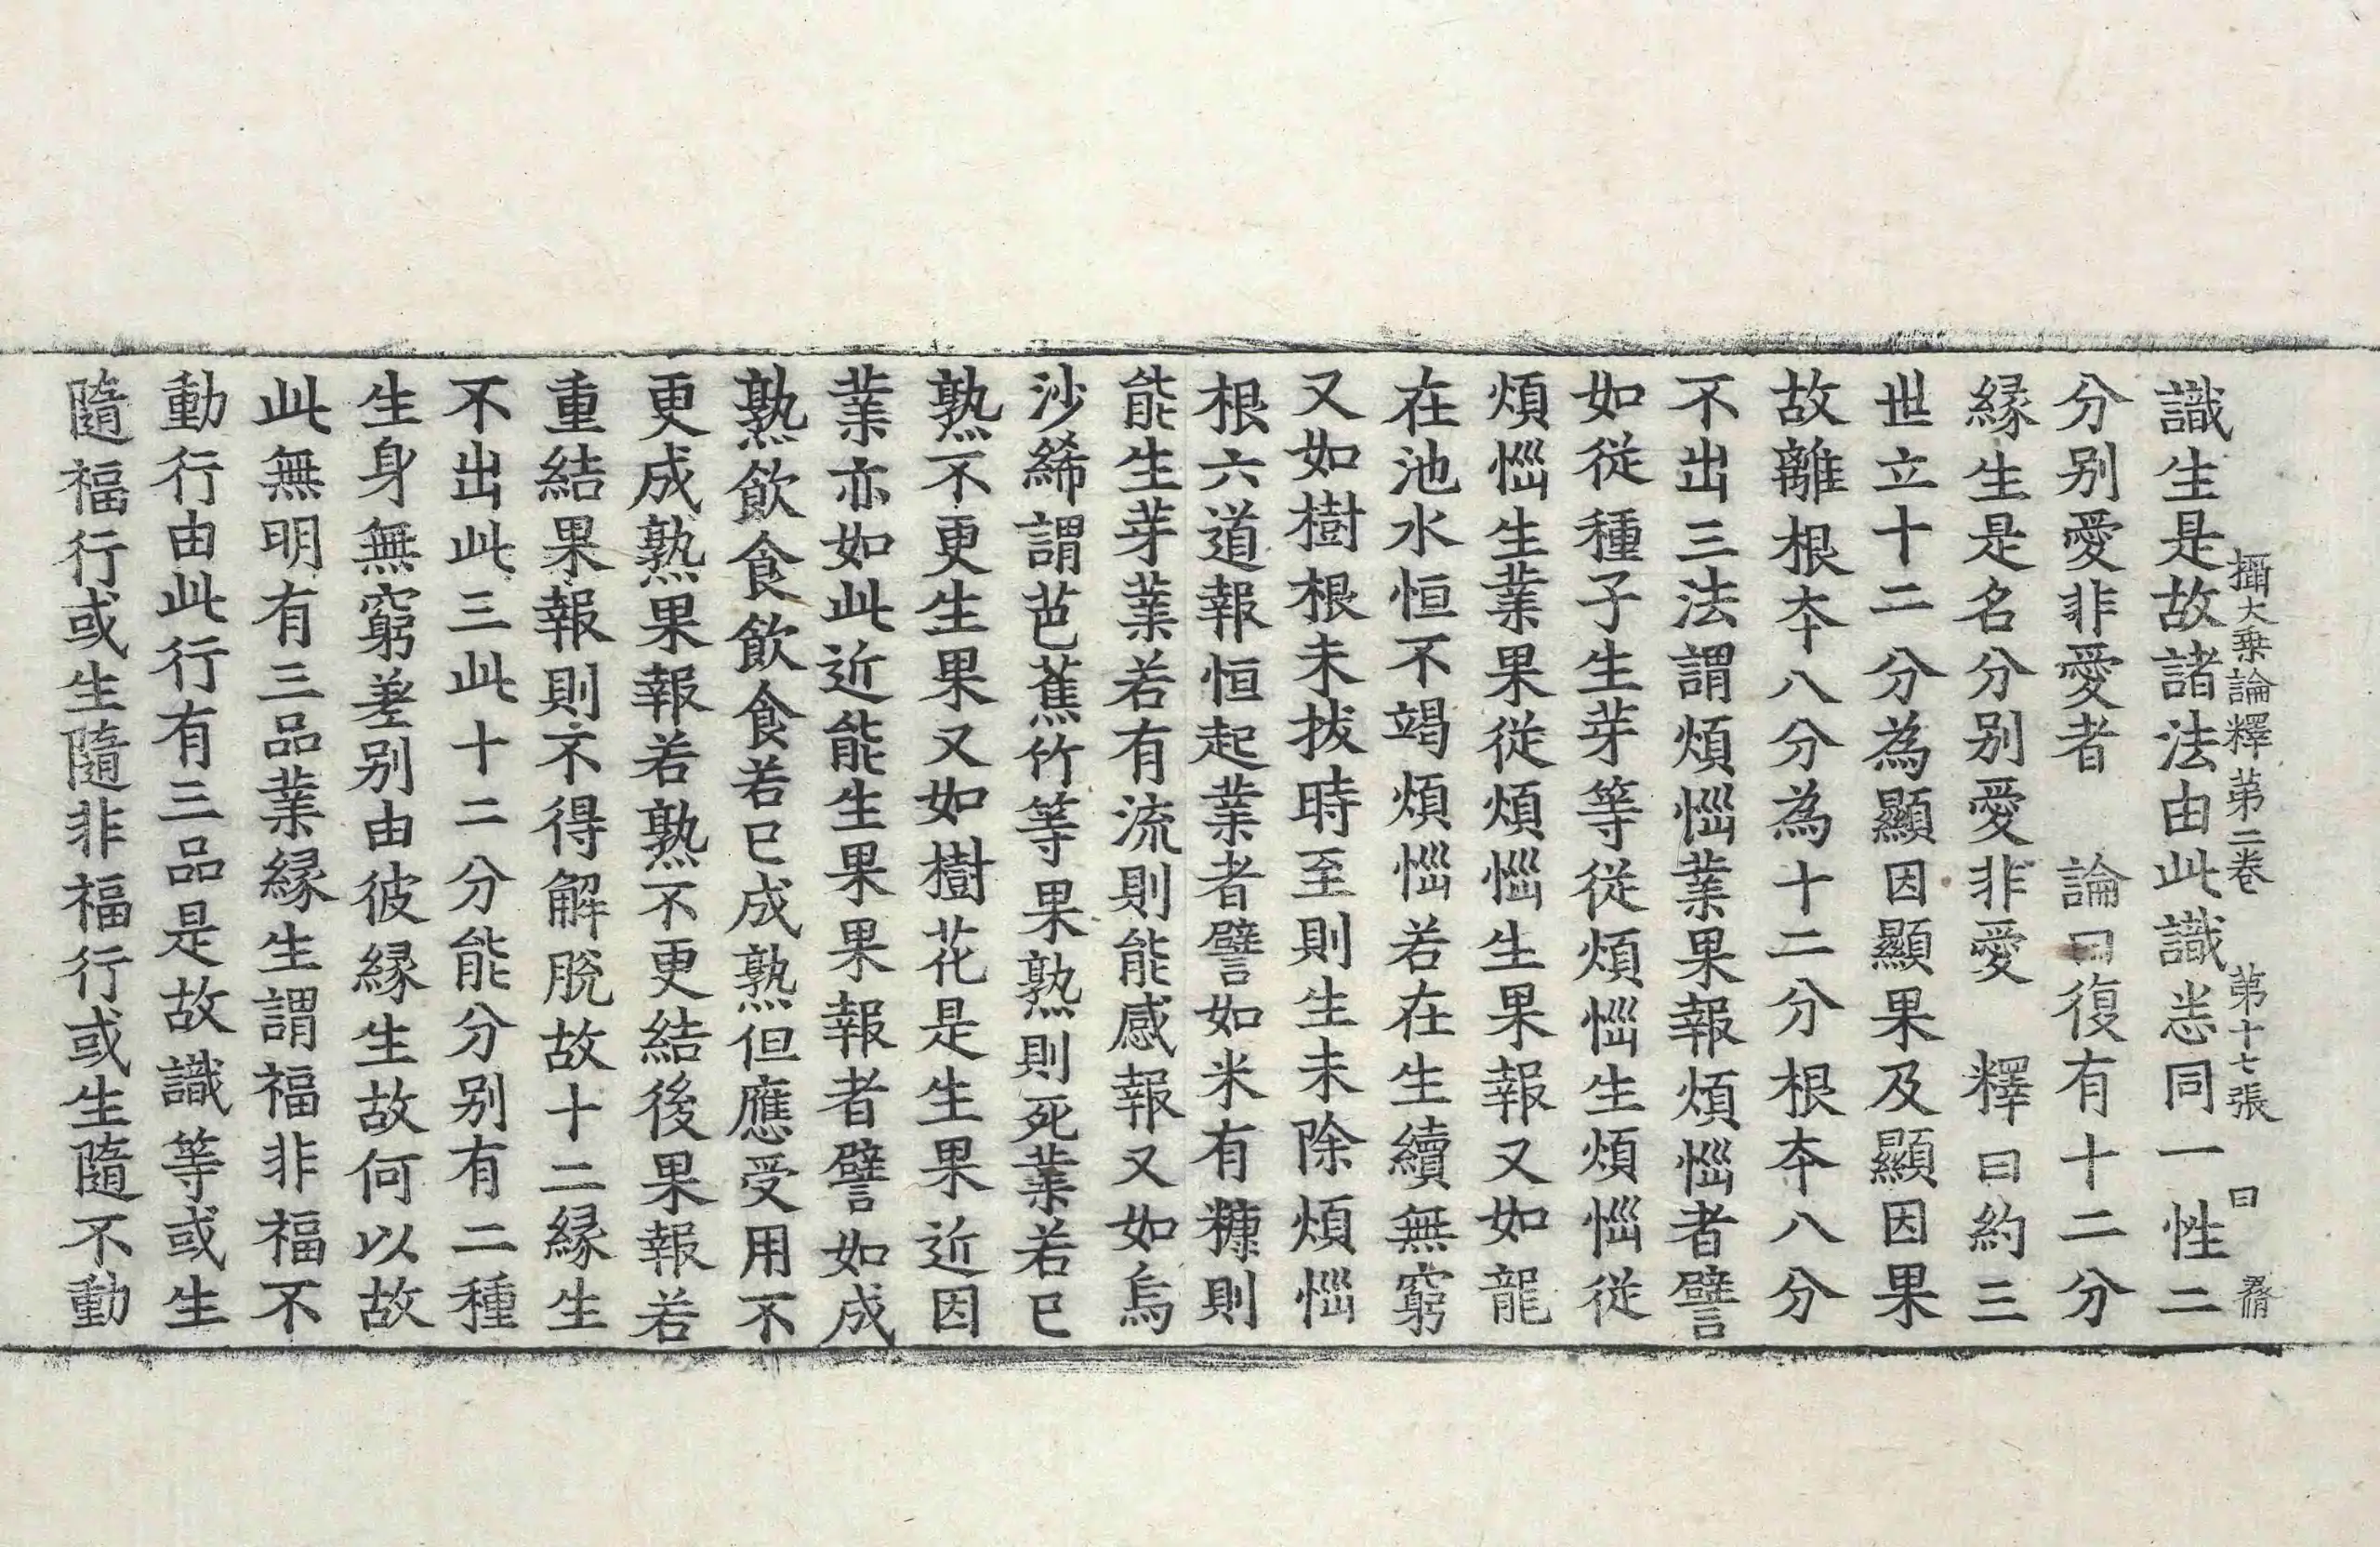 攝大乗論釋第二卷　第十七張　曰
識生是故諸法由此識恙同一性二
分别愛非愛者　論曰復有十二分
縁生是名分别愛非愛　釋曰約三
世立十二分為顯因顯果及顯因果
故離根夲八分為十二分根夲八分
不出三法謂煩惱業果報煩惱者譬
如從種子生芽等從煩惱生煩惱從
煩惱生業果從煩惱生果報又如龍
在池水恒不竭煩惱若在生續無窮
又如樹根未拔時至則生未除煩惱
根六道報恒起業者譬如米有糠則
能生芽業若有流則能感報又如烏
沙絺謂芭蕉竹等果熟則死業若已
熟不更生果又如樹花是生果近因
業亦如此近能生果果報者譬如成
熟飲食飲食若已成熟但應受用不
更成熟果報若熟不更結後果報若
重結果報則不得解脫故十二縁生
不出此三此十二分能分别有二種
生身無窮差别由彼縁生故何以故
此無明有三品業縁生謂福非福不
動行由此行有三品是故識等或生
隨福行或生隨非福行或生隨不動